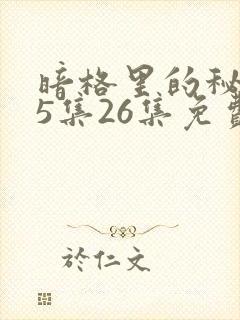 暗格里的秘
5集26集免费
於仁文